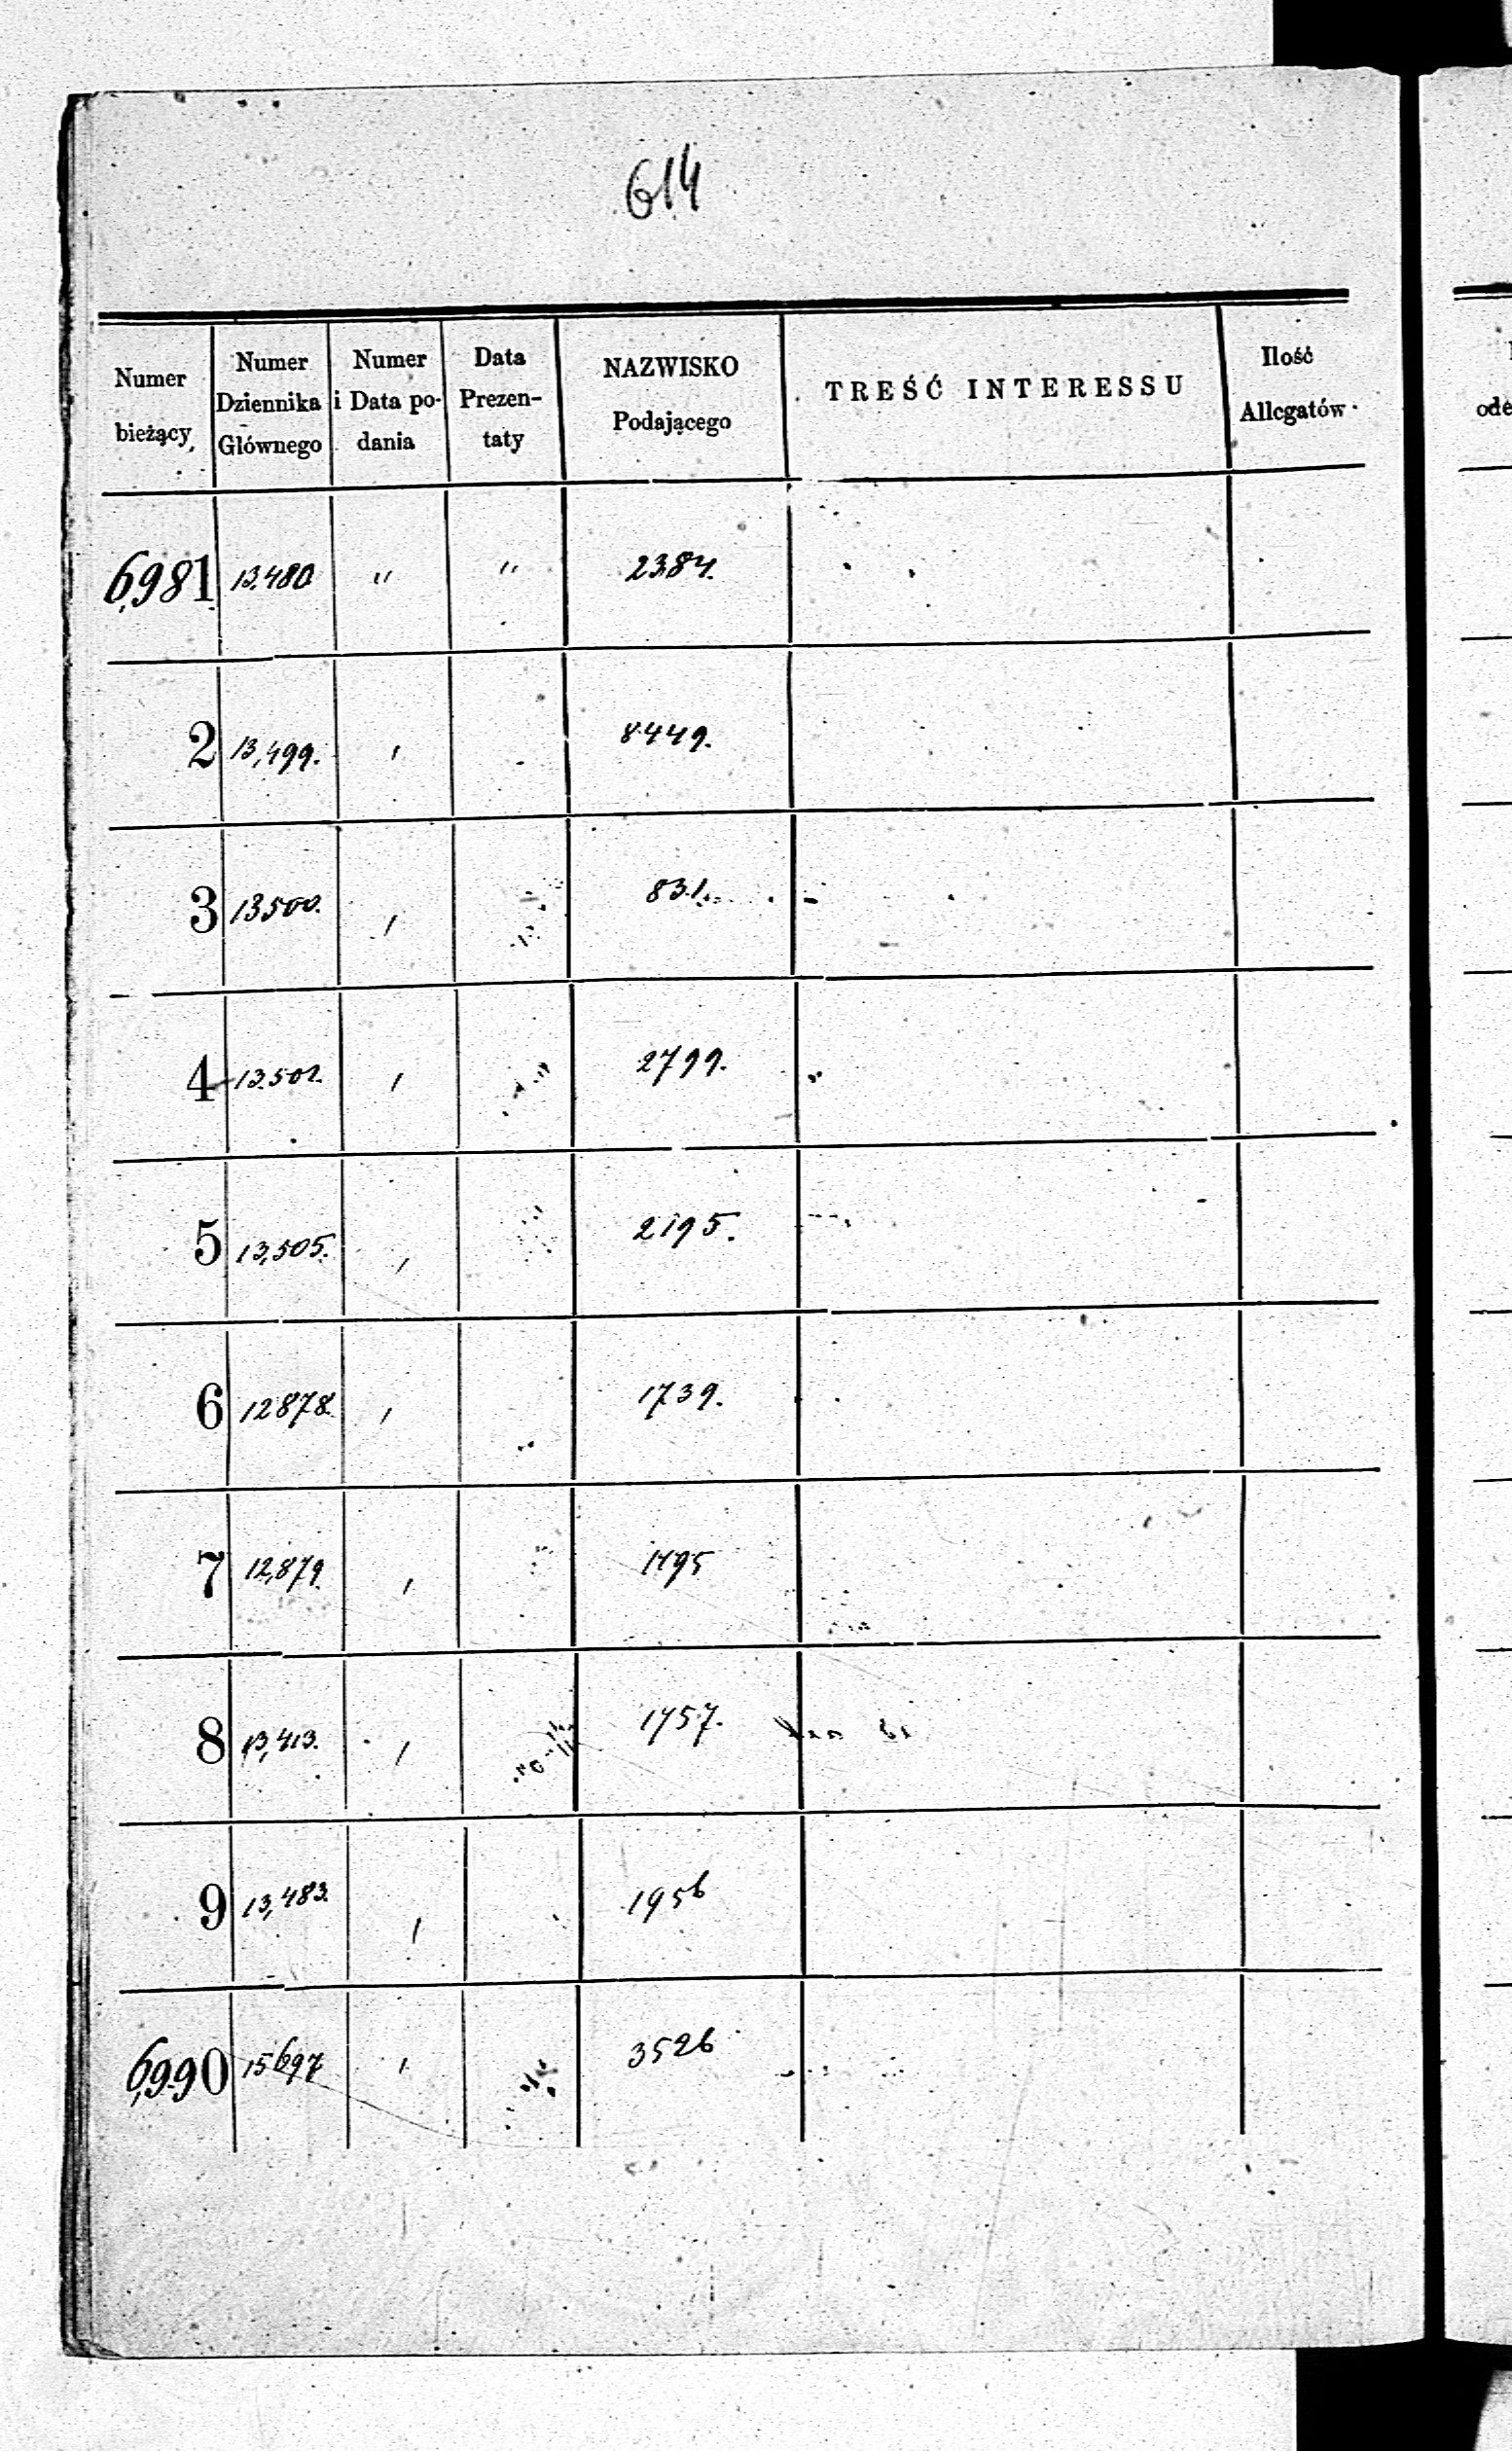 614
Numer bieżący
Numer Dziennika Głównego
Numer i Data podania
Data Prezentaty
NAZWISKO Podającego
TREŚĆ INTERESSU
Ilość Allegatów
6,981 13,480 " " 2384.
2 13,499. 8449.
3 13500. 831.
4 13502. 2799.
5 13,505. 2195.
6 12878. 1739.
7 12,879. 1795
8 13,413. 1757.
9 13,483. 1956
6,990 15697 3526